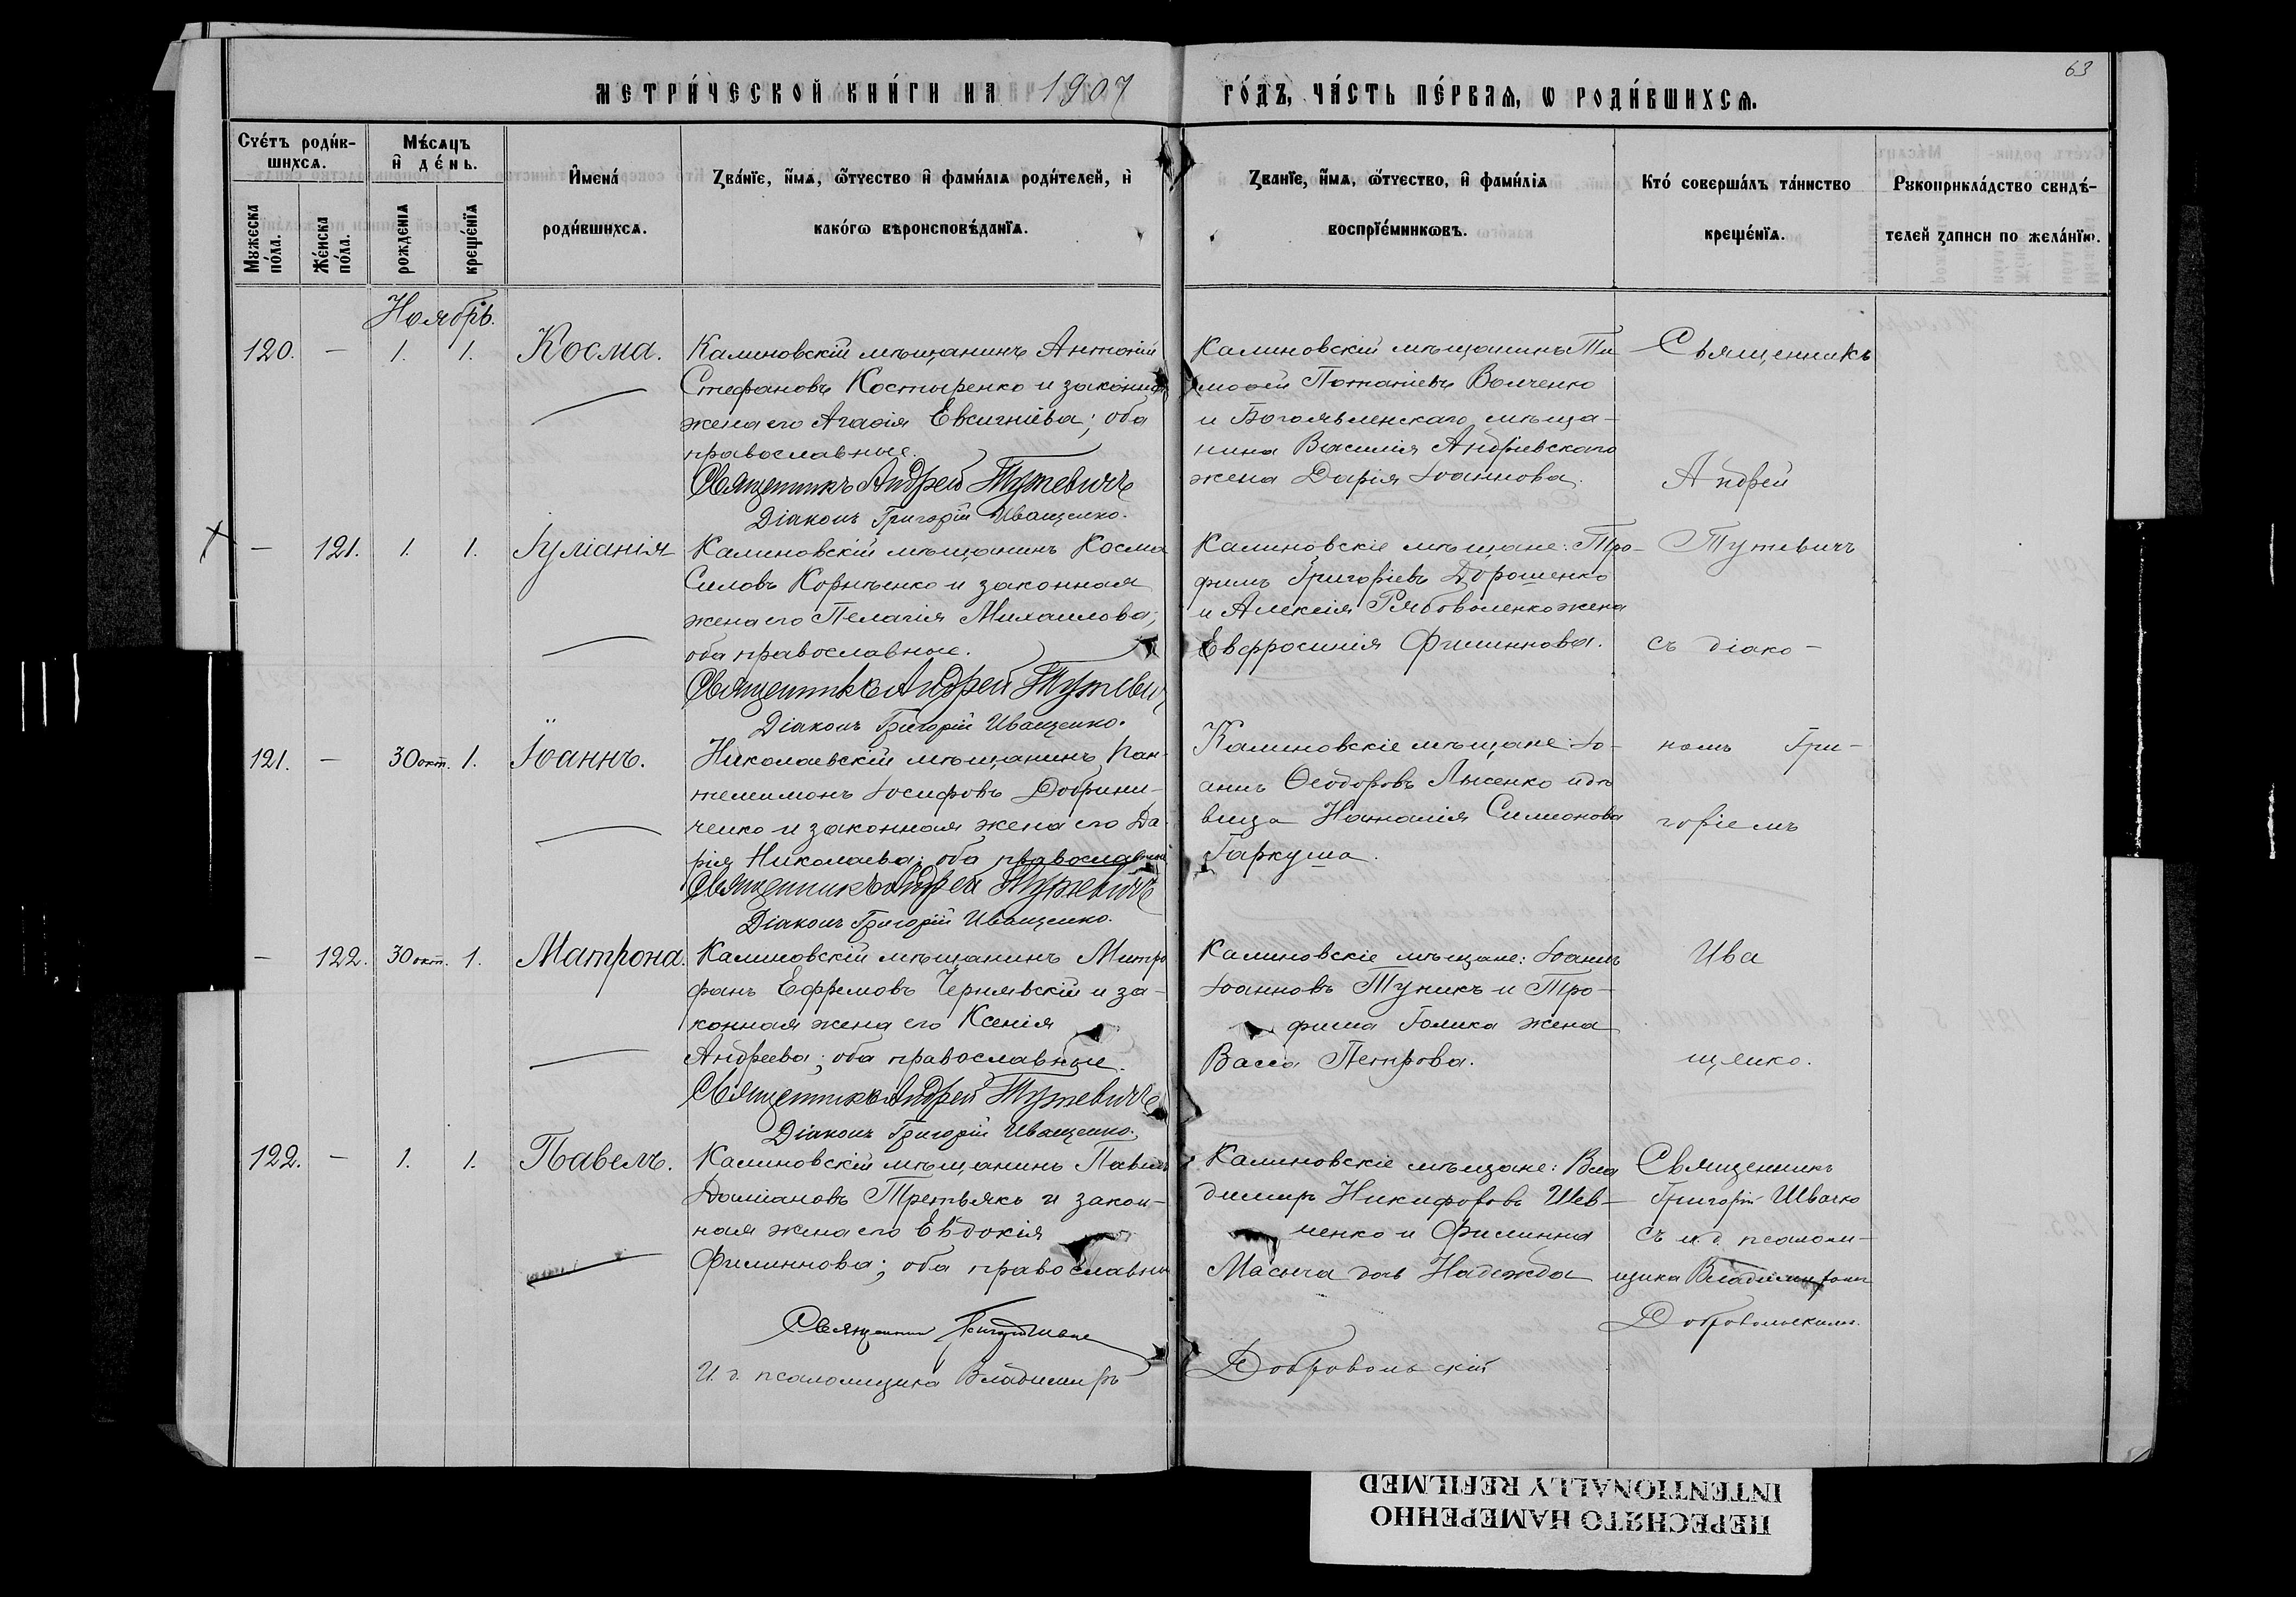 63
МЕТРИ́ЧЕСКОЙ КНИ́ГИ НА 1907 ГО́ДЪ, ЧА́СТЬ ПЕ́РВАѦ, Ѡ РОДИ́ВШИХСѦ.
Сче́тъ роди́в-
шихсѧ.
Мужеска по́ла.
Же́нска по́ла.
Мѣ́сѧцъ
и҆ де́нь.
рожденїѧ
креще́нїѧ
И҆мена́
роди́вшихсѧ.
Ꙁва́нїе, и҆́мѧ, ѻ҆́тчество и҆ фами́лїѧ роди́телей, и҆
како́гѡ вѣроисповѣ́данїѧ.
Ꙁванїе, и҆́мѧ, ѻ҆́тчество, и҆ фами́лїѧ
воспрїе́мникѡвъ.
Кто́ соверша́лъ та́инство
креще́нїѧ.
Рꙋкоприкла́дство свидѣ́-
телей ꙁаписи по жела́нїю.
Ноябрь.
120. — 1. 1. Косма.
Калиновскій мѣщанинъ Антоній
Стефановъ Костыренко и законная
жена его Агаѳія Евсигніева; оба
православные.
Священникъ Андрей Тутевичъ
Діаконъ Григорій Иващенко.
Калиновскій мѣщанинъ Ти-
моѳей Потапіевъ Волченко
и Богоявленскаго мѣща-
нина Василія Андріевскаго
жена Дарія Іоаннова.
Священникъ
Андрей
Тутевичъ
съ діако-
номъ Гри-
горіемъ
Ива
щенко.
— 121. 1. 1. Іуліанія
Калиновскій мѣщанинъ Косма
Силовъ Корнѣенко и законная
жена его Пелагія Михаилова;
оба православные.
Священникъ Андрей Тутевич
Діаконъ Григорій Иващенко.
Калиновскіе мѣщане: Тро-
фимъ Григоріевъ Дорошенко
и Алексія Рябоволенко жена
Евфросинія Филиппова.
121. — 30 окт. 1. Іоаннъ.
Николаевскій мѣщанинъ Пан-
телимонъ Іосифовъ Добрини-
ченко и законная жена его Да-
рія Николаева; оба православные
Священникъ Андрей Тутевичъ
Діаконъ Григорій Иващенко.
Калиновскіе мѣщане: Іо-
аннъ Ѳеодоровъ Лысенко и дѣ
вица Наталія Симонова
Гаркуша.
— 122. 30 окт. 1. Матрона.
Калиновскій мѣщанинъ Митро
фанъ Ефремовъ Чернявскій и за-
конная жена его Ксенія
Андреева; оба православные.
Священникъ Андрей Тутевичъ
Діаконъ Григорій Иващенко.
Калиновскіе мѣщане: Іоаннъ
Іоанновъ Тупикъ и Тро-
фима Голика жена
Васса Петрова.
122. — 1. 1. Павелъ.
Калиновскій мѣщанинъ Павелъ
Даміановъ Третьякъ и закон-
ная жена его Евдокія
Филиппова; оба православны
Священникъ Григорій Швачко
И. д. псаломщика Владимиръ Добровольскій
Калиновскіе мѣщане: Вла
димиръ Никифоровъ Шев-
ченко и Филиппа
Масыча дочь Надежда
Священникъ
Григорій Швачко
съ и. д. псалом-
щика Владимиромъ
Добровольскимъ.
ПЕРЕСНЯТО НАМЕРЕННО
INTENTIONALLY REFILMED